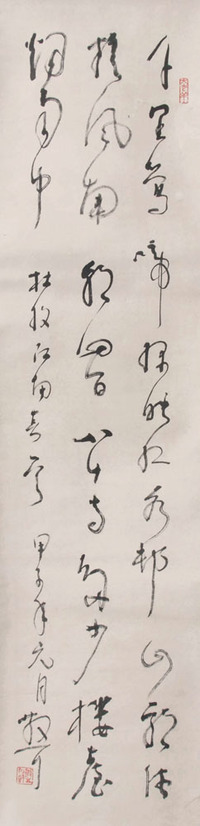 千里莺啼绿映红水村山郭酒
旗风南朝四百八十寺多少楼台
烟雨中
杜牧江南春
甲子年元月散耳